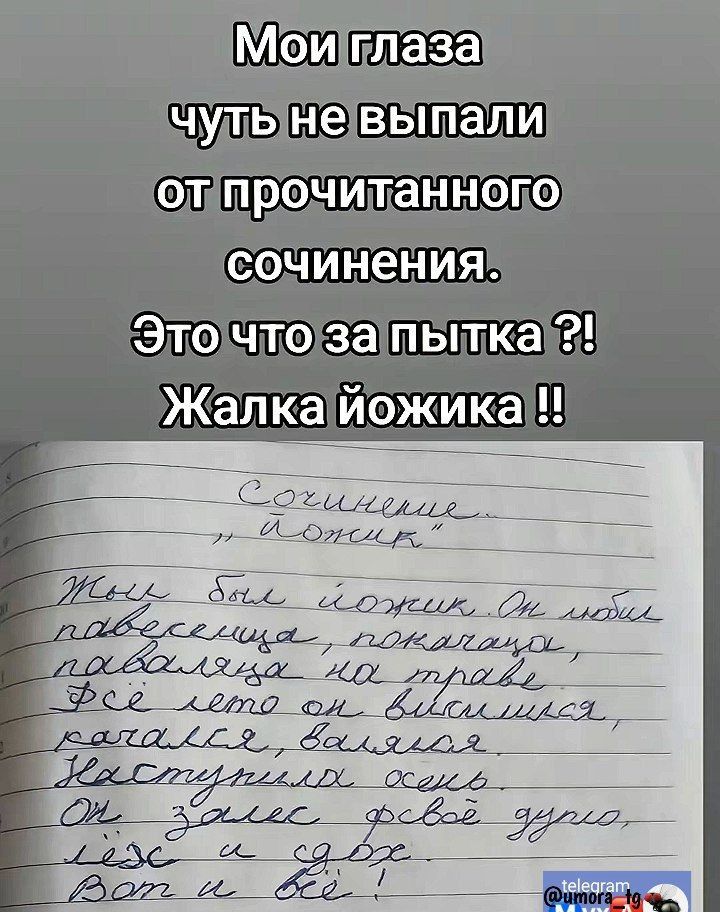 Мои глаза
чуть не выпали
от прочитанного
сочинения.
Это что за пытка ?!
Жалка йожика !!
Сочинение.
„Йожик"
Жыл был йожик. Он любил
павеселица, покачаца,
паваляца на траве
Фсё лето он висилился,
качался, валялся.
Наступила осень.
Он залес фсвоё дупло,
лёж и сдох.
Вот и всё!
telegram
@umora_tg